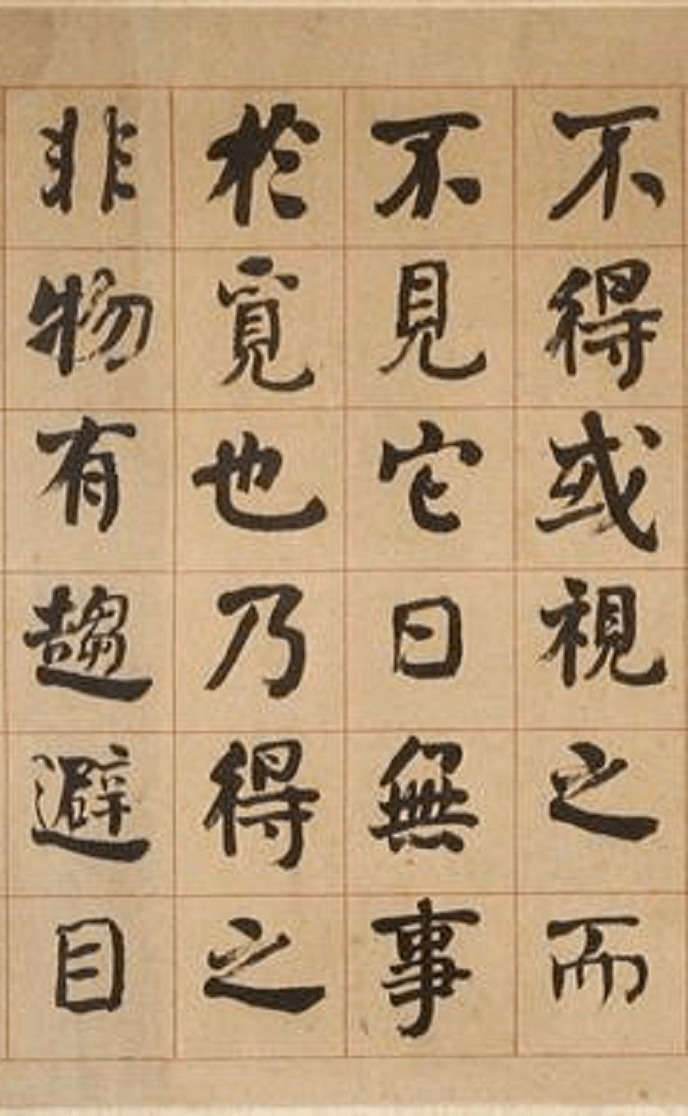 不得或視之而
不見它日無事
於覓也乃得之
非物有趨避目